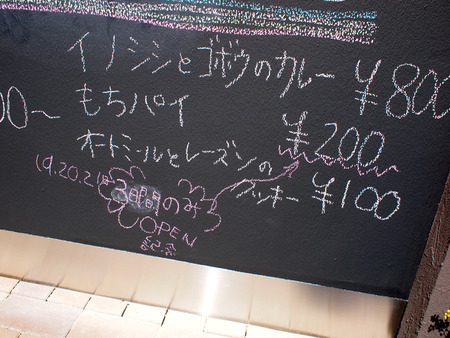 イノシシとゴボウのカレー ¥800
00〜
もちパイ
¥200
オートミールとレーズンの
クッキー ¥100
19.20.21は
3日間のみ
OPEN
記念